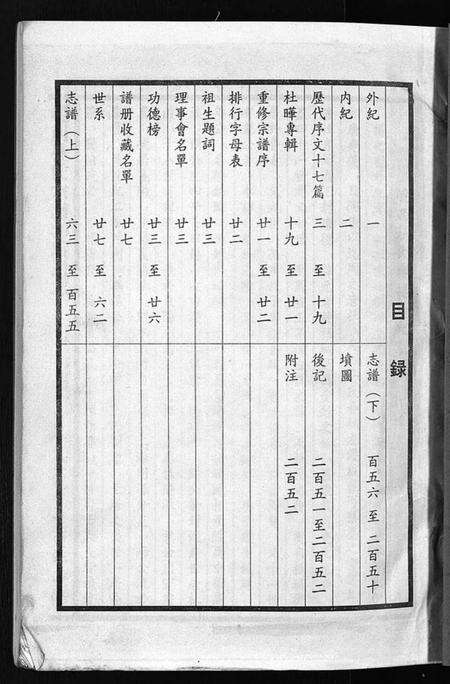 目録
外紀 一
内紀 二
歷代序文十七篇 三 至 十九
杜曄專輯 十九 至 廿一
重修宗譜序 廿一 至 廿二
排行字母表 廿二
祖生題詞 廿三
理事會名單 廿三
功德榜 廿三 至 廿六
譜册收藏名單 廿七
世系 廿七 至 六二
志譜（上） 六三 至 百五五
志譜（下） 百五六 至 二百五十
墳圖
後記 二百五一至二百五二
附注 二百五二